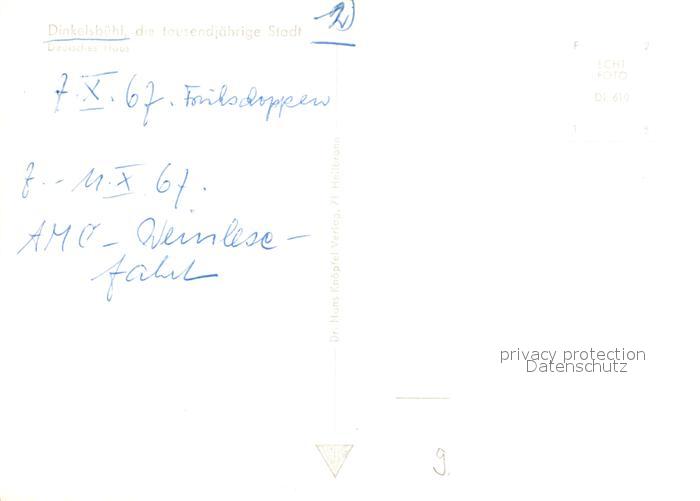 2)
Dinkelsbühl, die tausendjährige Stadt
Deutsches Haus
7. X. 67. Frühschoppen
7. - 11. X 67.
AMC - Weinlese-
fahrt
Dr. Hans Knöpfel Verlag, 71 Heilbronn
F 2
ECHT
FOTO
Di 610
1 5
privacy protection
Datenschutz
9.